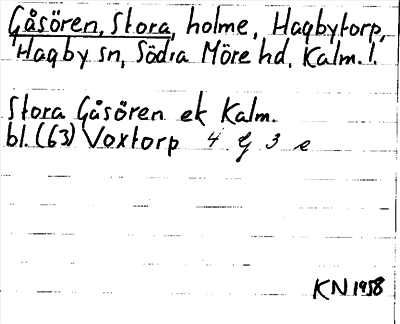 Gåsören, Stora, holme, Hagbytorp,
Hagby sn, Södra Möre hd, Kalm. l.
Stora Gåsören ek Kalm.
bl. (63) Voxtorp 4 G 3 e
KN 1958